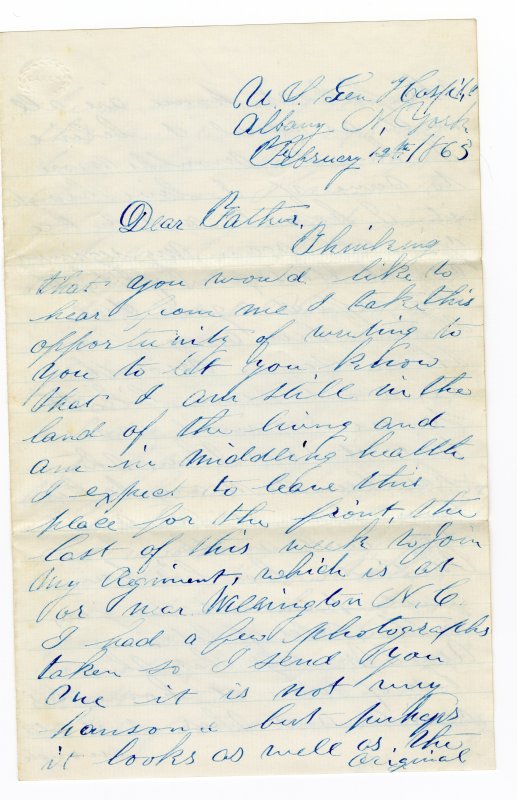 U. S. Gen Hospital
Albany N. York
February 19th 1865
Dear Father,
Thinking
that you would like to
hear from me I take this
opportunity of writing to
you to let you know
that I am still in the
land of the living and
am in middling health
I expect to leave this
place for the front, the
last of this week to join
my Regiment, which is at
or near Willmington N. C.
I had a few photographs
taken so I send you
one it is not very
hansome but perhaps
it looks as well as the
original